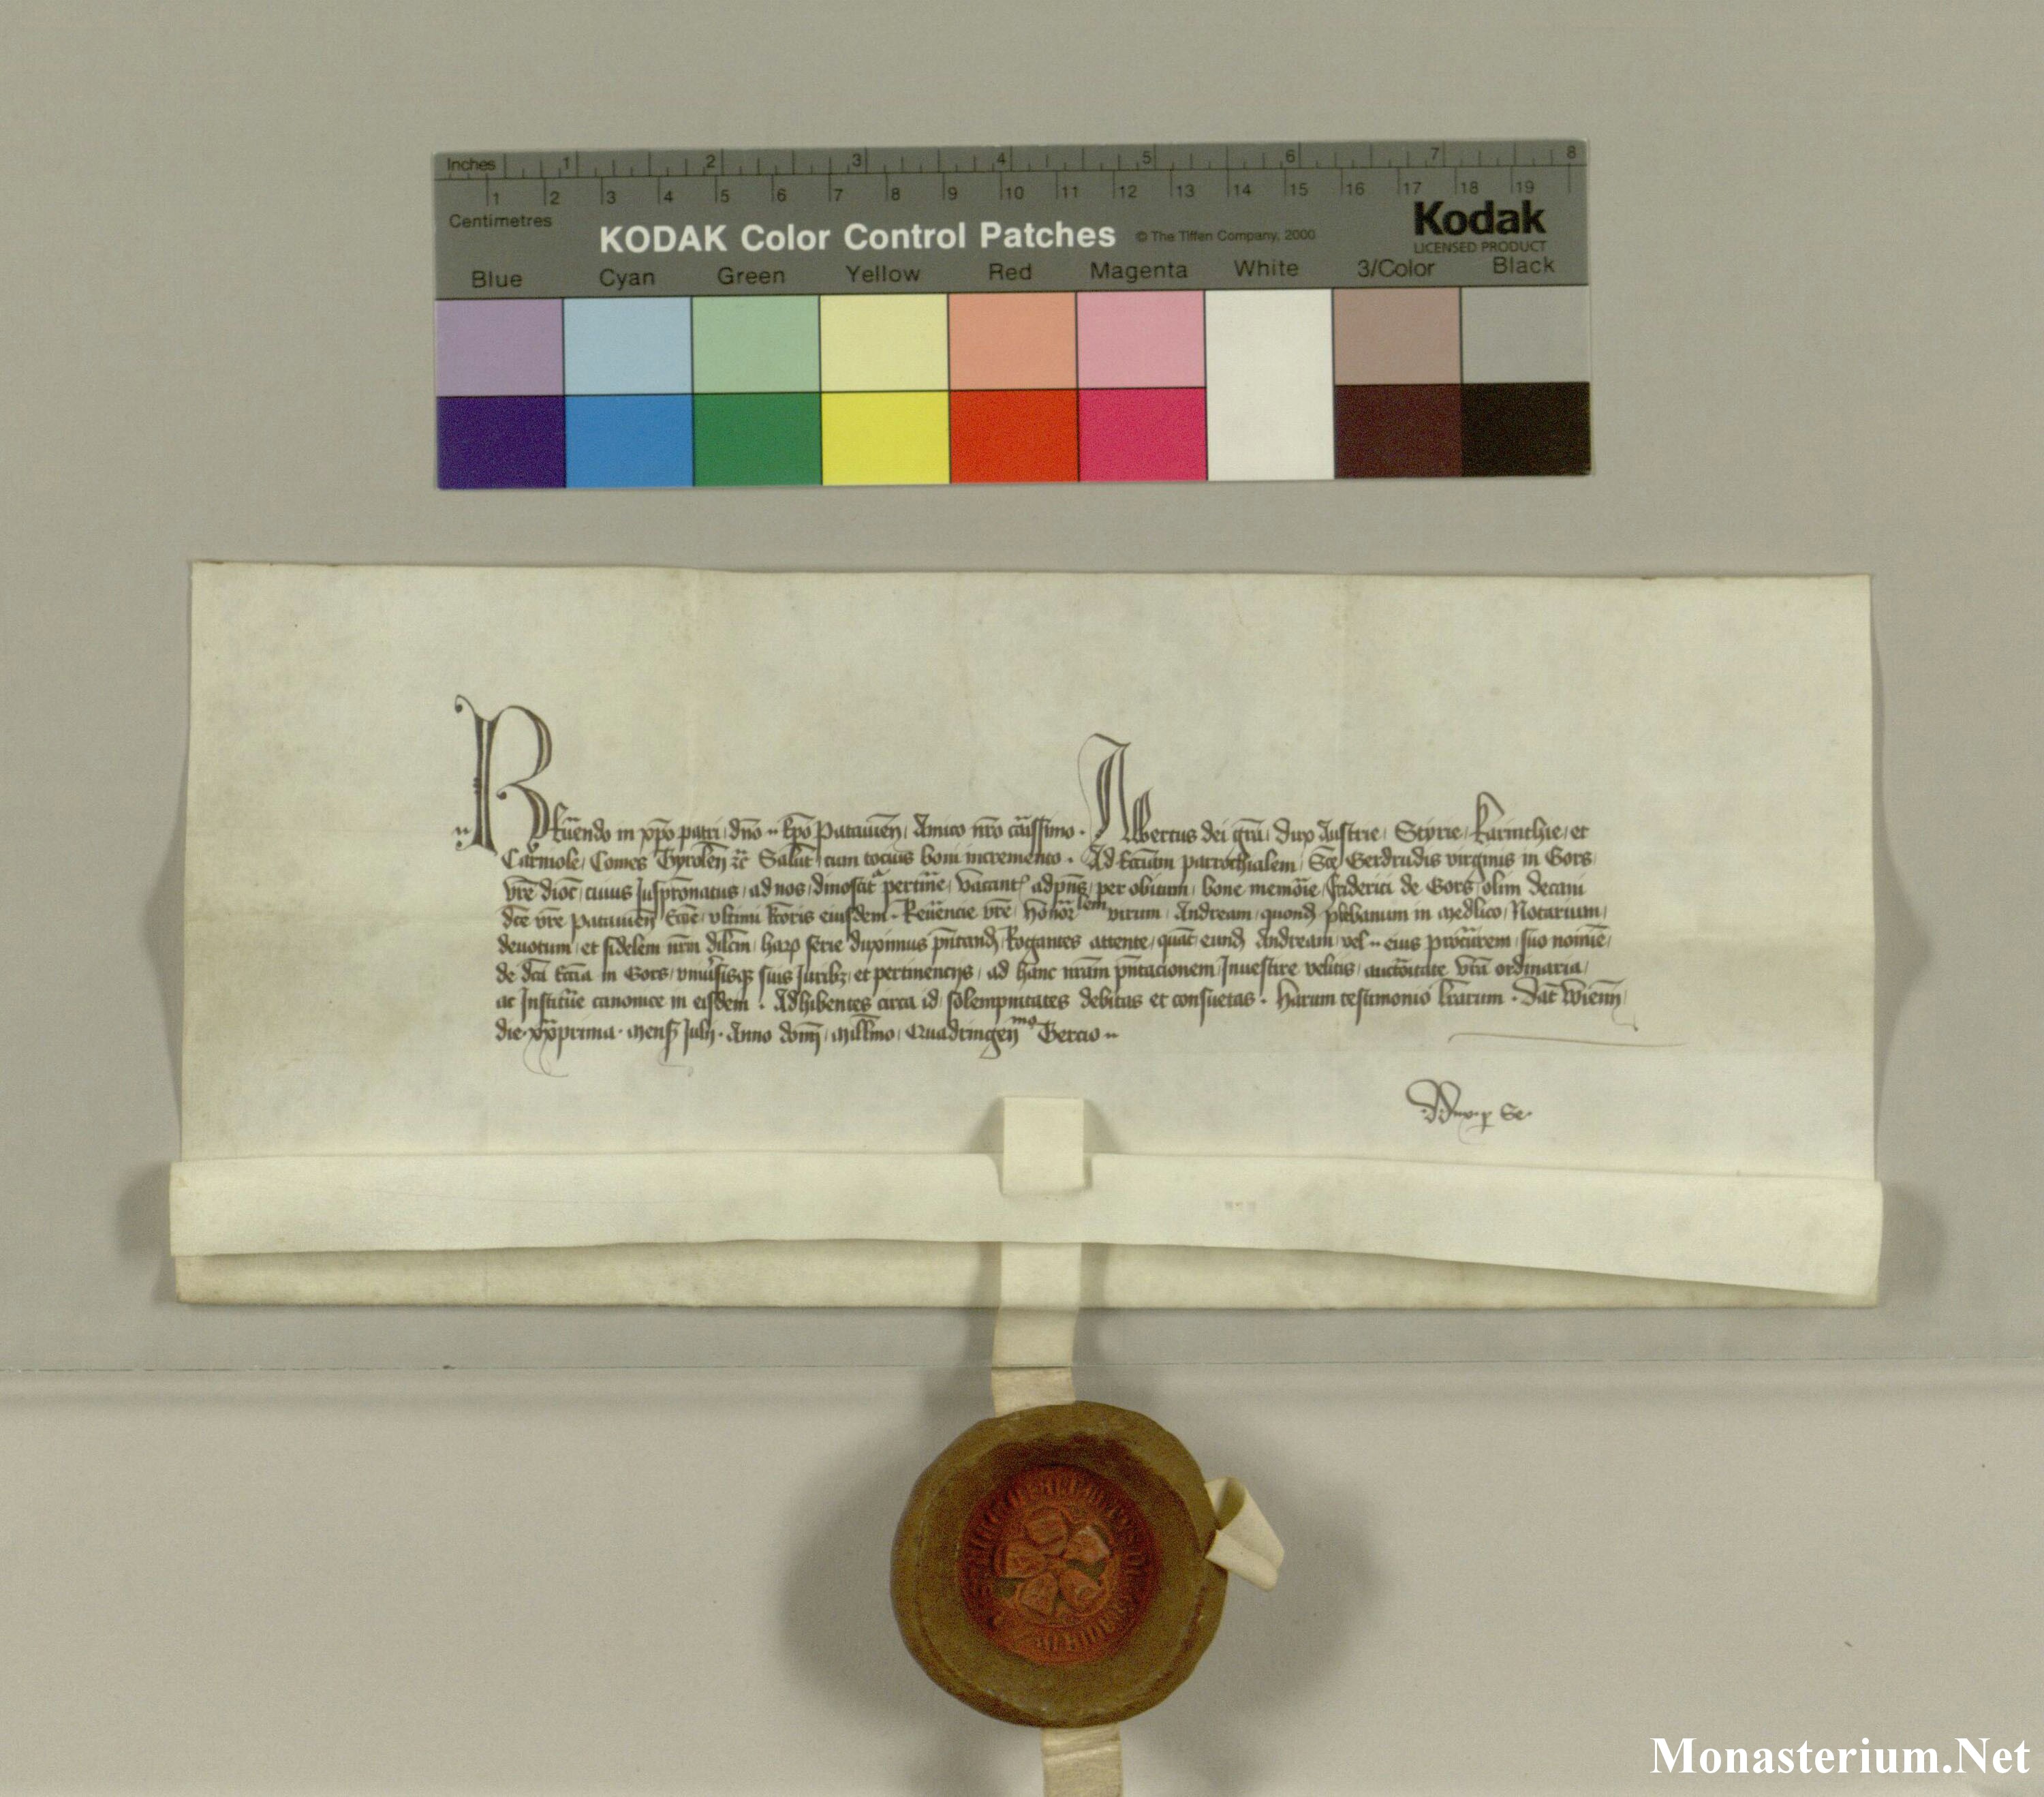 Inches 1 2 3 4 5 6 7 8
1 2 3 4 5 6 7 8 9 10 11 12 13 14 15 16 17 18 19
Centimetres
KODAK Color Control Patches © The Tiffen Company, 2000 Kodak
LICENSED PRODUCT
Blue Cyan Green Yellow Red Magenta White 3/Color Black
Reu̅endo in xp̅o patri, dn̅o ·· Ep̅o Patauien̅, Amico nr̅o car̅issimo · Albertus dei gra̅, Dux Austrie, Styrie, Karinthie, et
Carniole, Comes Tyrolen̅ ꝛc̅ Salut̅ cum tocius boni incremento · Ad Ecc̅iam parrochialem, Sc̅e Gerdrudis virginis in Gors,
vr̅e dioc̅, cuius Juspr̅onatus, ad nos, dinoscit᷑ pertine̅, vacant̅ ad pn̅s, per obitum, bone memo̅rie, Friderici de Gors, olim decani
dc̅e vr̅e Patauien̅ Ecc̅ie, vltimi Rc̅oris eiusdem · Reu̅encie vr̅e, honor̅lem virum, Andream, quond̅ plebanum in Medlico, Notarium,
deuotum, et fidelem nr̅m dilc̅m, harꝝ serie duximus pn̅tand̅, Rogantes attente, quat̅ eund̅ Andream, vel ·· eius procu̅rem, suo nomi̅e,
de dc̅a Ecc̅ia in Gors, vniu̅sisqꝫ suis Juribꝫ, et pertinencijs, ad hanc nr̅am pn̅tacionem, Inuestire velitis, aucto̅itate vr̅a ordinaria,
ac Institue̅ canonice in eisdem · Adhibentes circa id, solempnitates debitas et consuetas · Harum testimonio lr̅arum · Dat̅ Wienn̅,
die · xxprima · Mens̅ Julij · Anno domi̅, Mill̅mo, Quadringen̅mo Tercio ··
Monasterium.Net